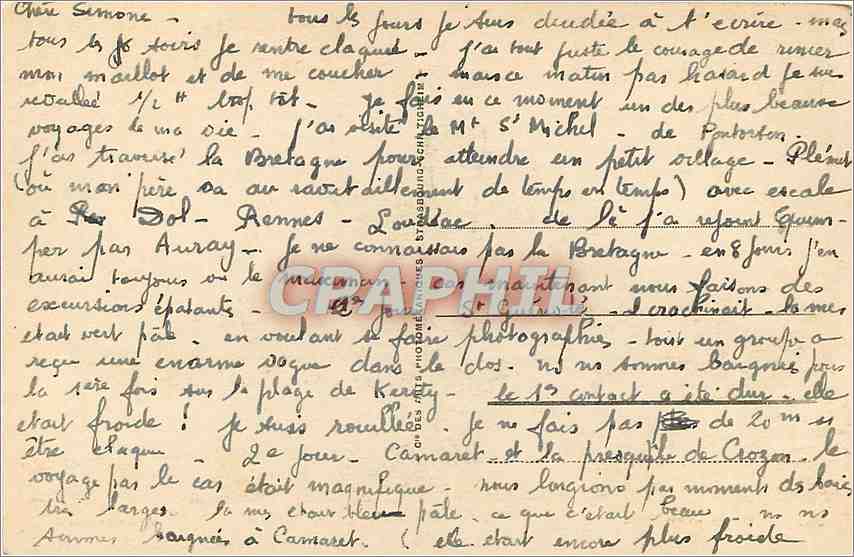 Chère Simone - tous les jours je suis decidée à t'ecrire - mais
tous les soirs je rentre claquée - j'ai tout juste le courage de rincer
mon maillot et de me coucher - mais ce matin par hasard je suis
reveillée 1/2 H trop tôt - je fais en ce moment un des plus beaux
voyages de ma vie - j'ai visité le Mt St Michel - de Pontorson
j'ai traversé la Bretagne pour atteindre un petit village - Plémet
(où mon père va au ravitaillement de temps en temps) avec escale
à Dol - Rennes - Loudéac. de là j'ai rejoint Quim-
per par Auray - Je ne connaissais pas la Bretagne - en 8 jours j'en
aurai toujours vu le maximum - car maintenant nous faisons des
excursions épatantes - 1er jour St Guénolé - il crachinait - la mer
etait vert pâle - en voulant se faire photographier - tout un groupe a
reçu une enorme vague dans le dos - ns ns sommes baignés pour
la 1ère fois sur la plage de Kerity - le 1er contact a été dur - elle
etait froide ! Je suis rouillée - Je ne fais pas de 20m ss
être claquée - 2e jour - Camaret - et la presqu'île de Crozon - le
voyage par le car était magnifique - nous longions par moments ds baies
très larges - la mer etait bleu pâle - ce que c'était beau ns ns
sommes baignés à Camaret - (elle etait encore plus froide
Cie DES ARTS PHOTOMECANIQUES - STRASBOURG-SCHILTIGHEIM
CRAPHIL